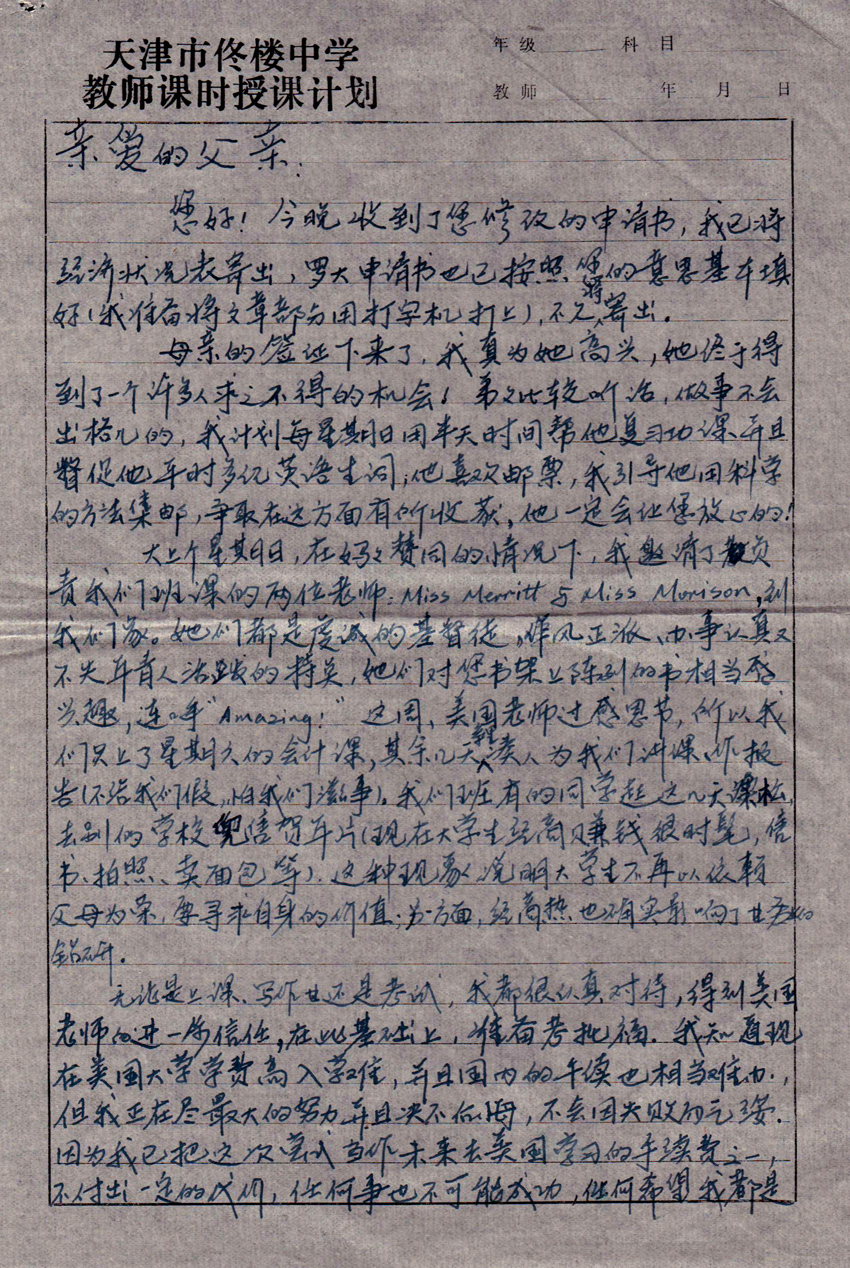 天津市佟楼中学
教师课时授课计划
年级 科目
教师 年 月 日
亲爱的父亲:
您好!今晚收到了您修改的申请书,我已将
经济状况表寄出,罗大申请书也已按照您的意思基本填
好(我准备将文章部分用打字机打上),不久将寄出.
母亲的签证下来了,我真为她高兴,她终于得
到了一个许多人求之不得的机会!弟弟比较听话,做事不会
出格儿的,我计划每星期日用半天时间帮他复习功课并且
督促他平时多记英语生词;他喜欢邮票,我引导他用科学
的方法集邮,争取在这方面有所收获,他一定会让您放心的!
大上个星期日,在妈妈赞同的情况下,我邀请了负
责我们班课的两位老师:Miss Merritt 与 Miss Morrison,到
我们家。她们都是虔诚的基督徒,作风正派、办事认真又
不失年青人活跃的特点,她们对您书架上陈列的书相当感
兴趣,连呼"Amazing!"这周,美国老师过感恩节,所以我
们只上了星期六的会计课,其余几天请人为我们讲课、作报
告(不给我们假,怕我们滋事).我们班有的同学趁这几天课松,
去别的学校兜售贺年片(现在大学生经商赚钱很时髦,借
书、拍照、卖面包等).这种现象说明大学生不再以依赖
父母为荣,要寻求自身的价值;另一方面,经商热也确实影响了其学业的
钻研.
无论是上课、写作业还是考试,我都很认真对待,得到美国
老师的进一步信任,在此基础上,准备考托福.我知道现
在美国大学学费高入学难,并且国内的手续也相当难办,
但我正在尽最大的努力并且决不后悔,不会因失败而气馁.
因为我已把这次尝试当作未来去美国学习的手续费之一,
不付出一定的代价,任何事也不可能成功,任何希望我都是